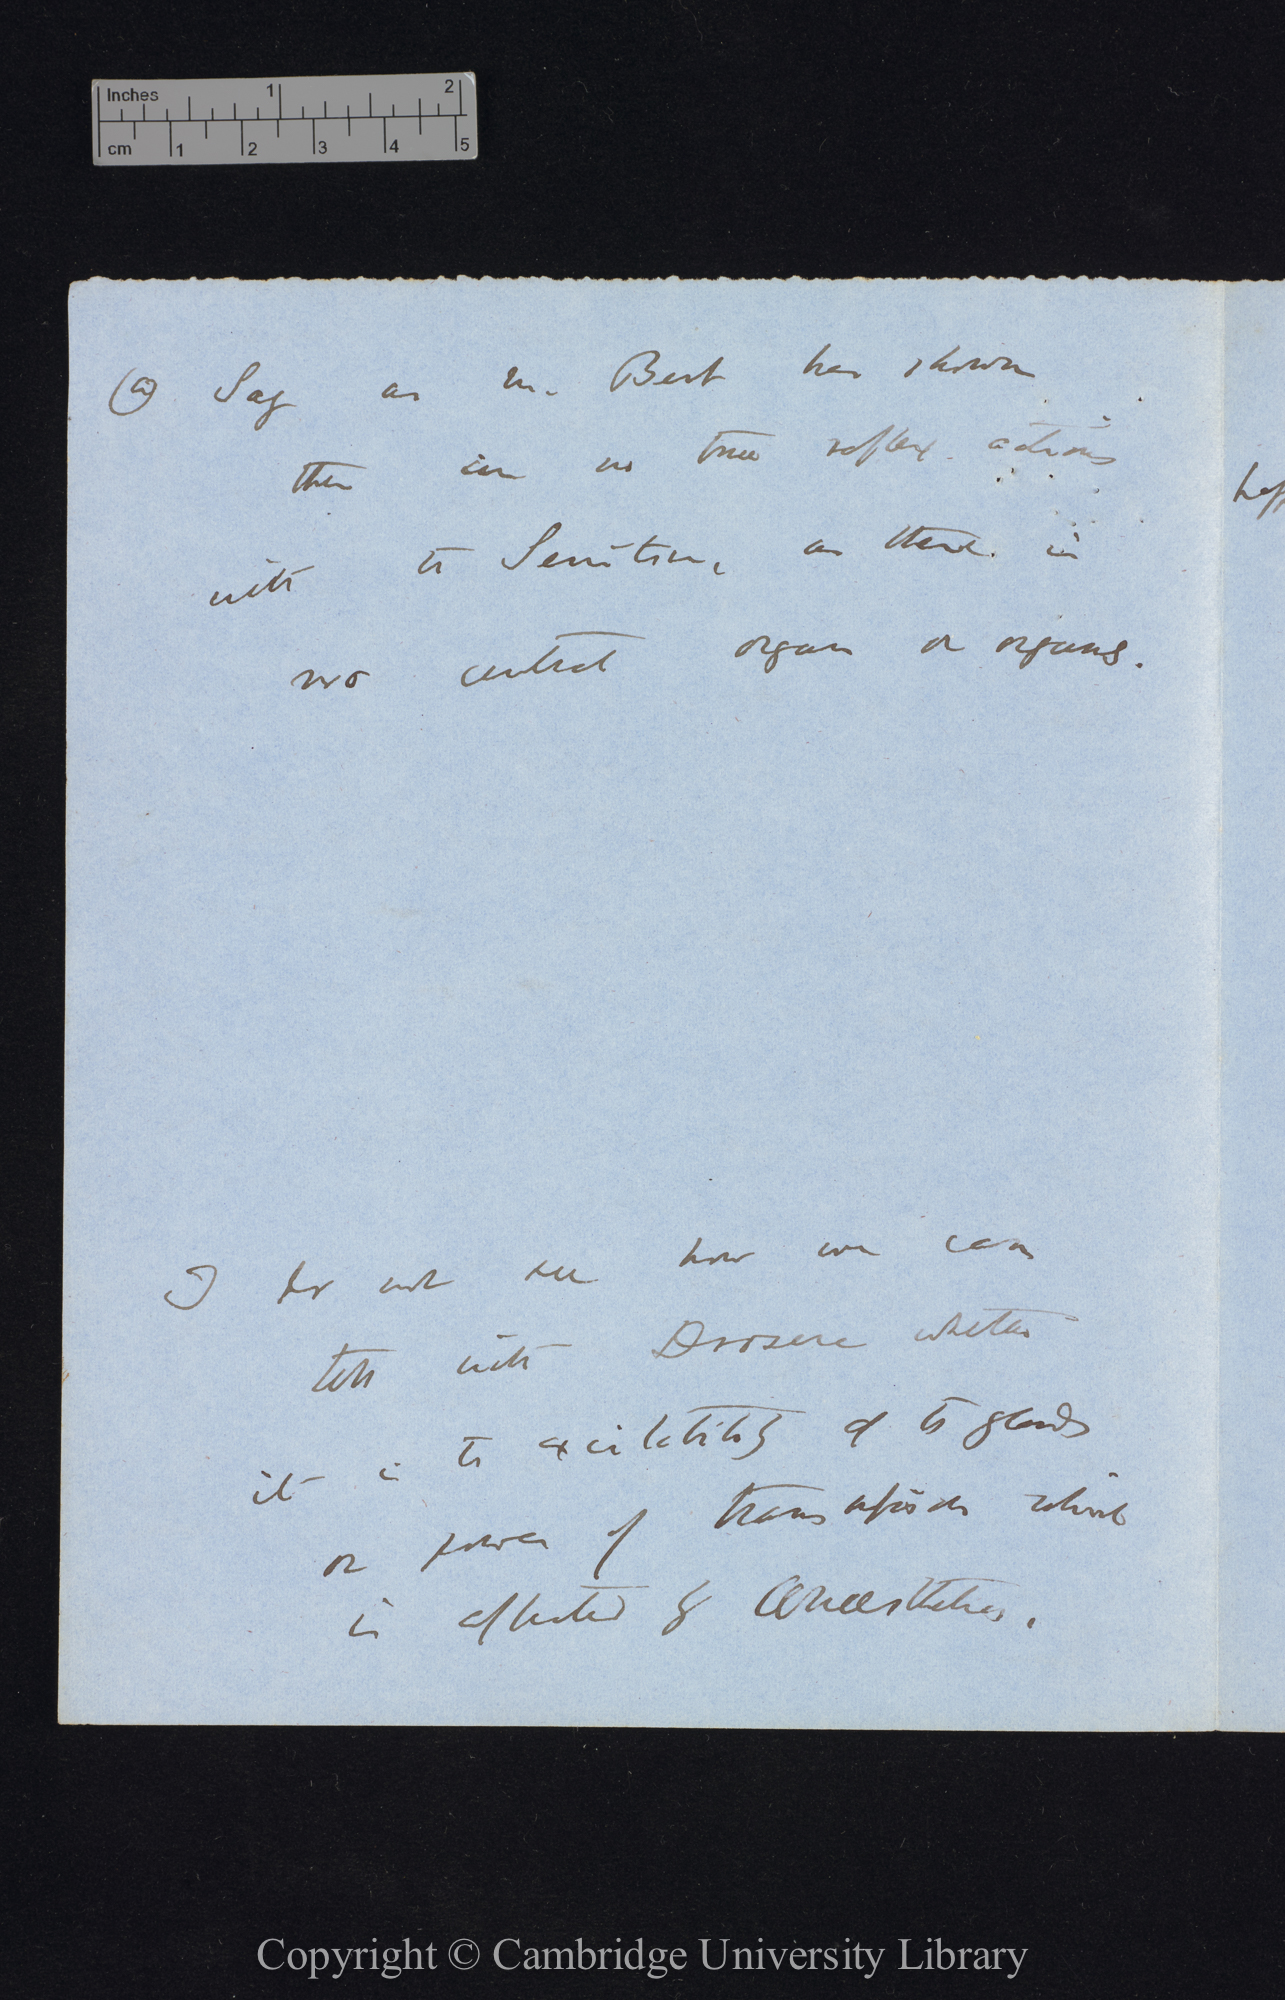 Inches 1 2
cm 1 2 3 4 5
(a) Say as M. Bert has shown
there are no true reflex actions
with the Sensitive, as there is
no central organ or organs.
I do not see how we can
tell with Drosera whether
it is the excitability of the glands
or power of transmission which
is affected by anaesthetics.
Copyright © Cambridge University Library